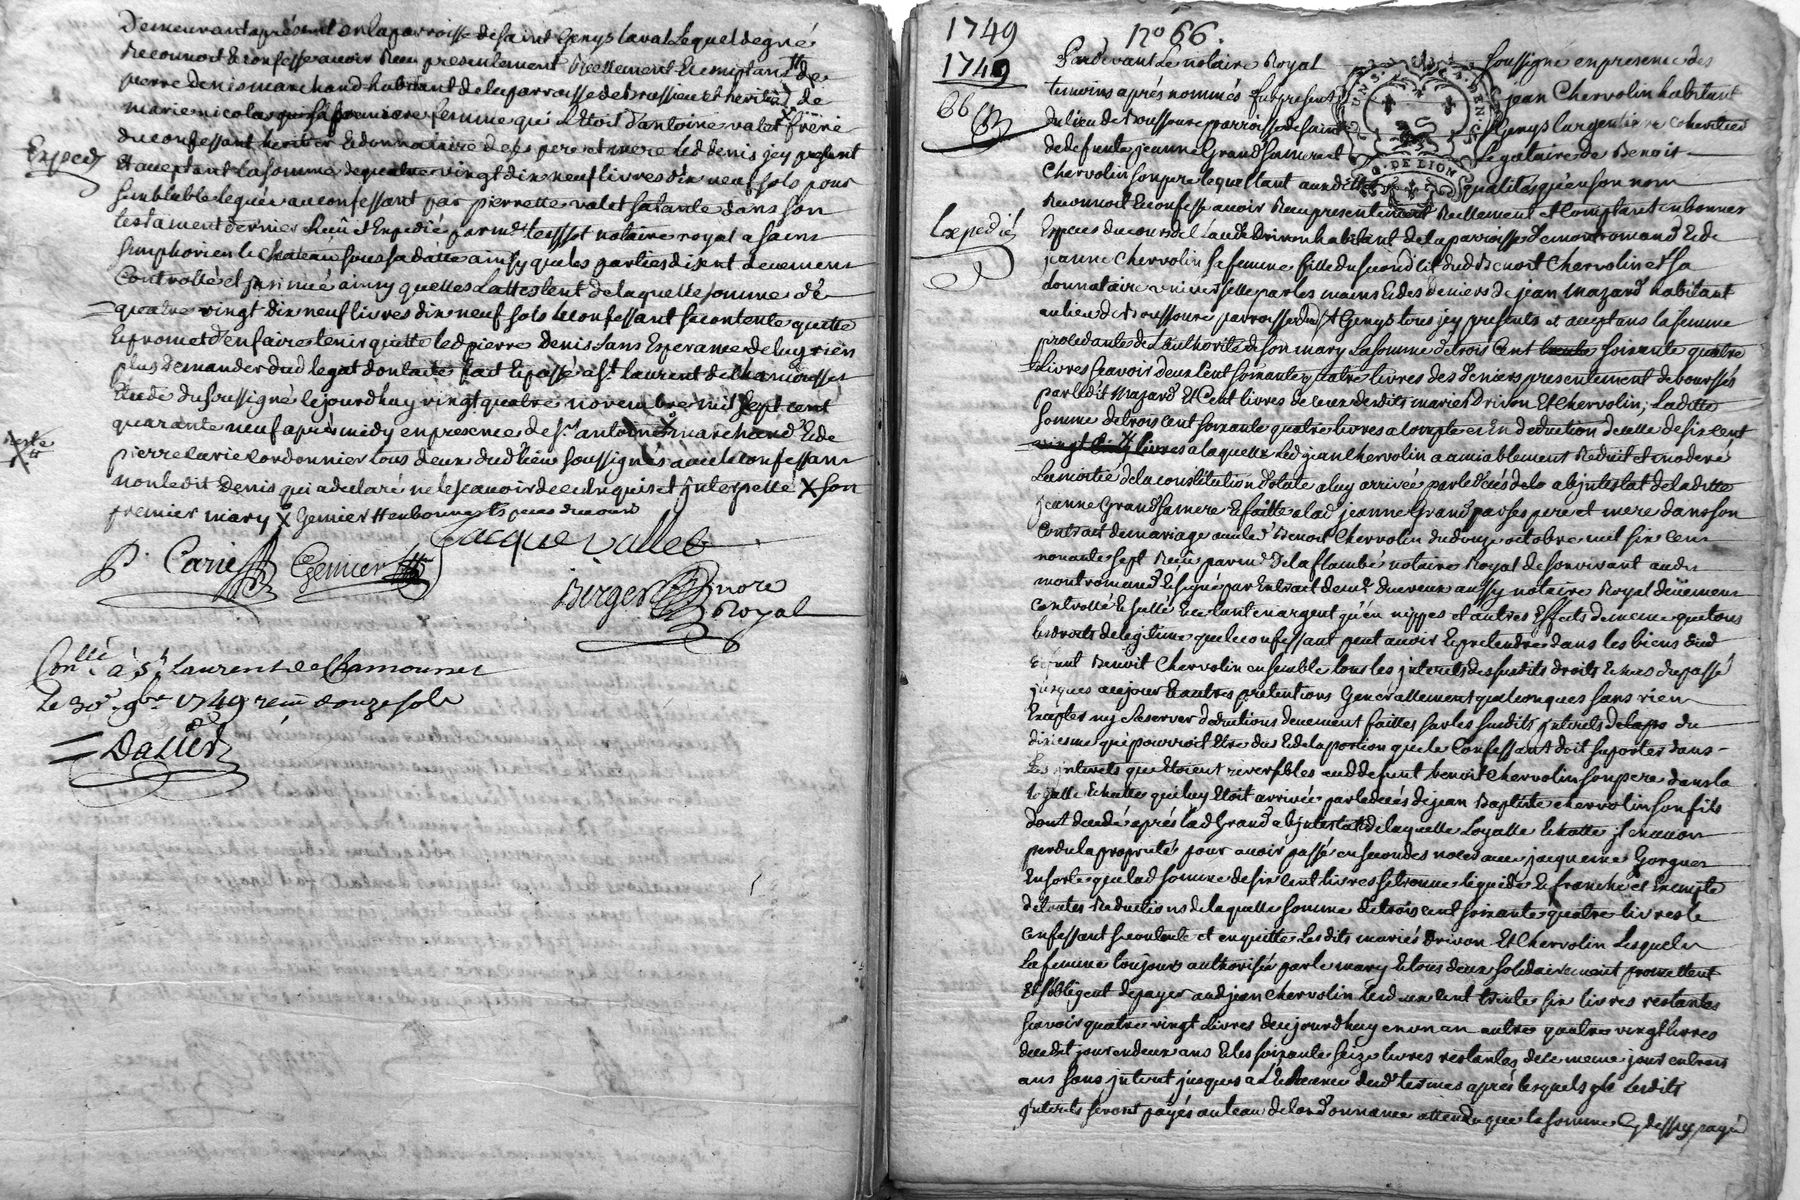 Demeurant aprésent en la parroisse de saint Genys laval Lequel de gré
Reconnoit Et confesse avoir Receu presentement Reellement Et comptant de
pierre denis marchand habitant de la parroisse de Brussieu et heritier de
marie nicolas sa premiere femme qui Etoit d'antoine valet frere
du confessant heritier Et donnataire de ses pere et mere led denis jcy present
Et acceptant La somme de quatre vingt dix neuf livres dix neuf sols pour
semblable legué au confessant par pierrette valet sa tante dans son
testament dernier Receu et Expedié par me teyssot notaire royal a saint
simphorien le chateau sous sa datte ainsy que les parties disent deuement
Controllé et insinué ainsy quelles L'attestent de laquelle somme de
quatre vingt dix neuf livres dix neuf sols le confessant se contente quitte
Et promet d'en faire tenir quitte led pierre denis sans Esperance de luy rien
plus demander dud legat dont acte fait Et passé a st laurent de chamousset
Etude du soussigné le jourdhuy vingt quatre novembre mil sept cent
quarante neuf aprés midy en presence de sr antoine marchand Et de
pierre carie cordonnier tous deux dud lieu soussignés avec le confessant
non ledit Denis qui a declaré ne le scavoir de ce Enquis et jnterpellé X son
premier mary X Gemier Et en bonnes Especes du cours
Expedié
Jacque vallet
P. Carie Gemier
Berger nore
Royal
Conllé à St Laurent de Chamousset
Le 30e 9bre 1749 reçu douze sols
Dalier
1749
1749
66
no 66.
GEN. DE LION
Expedié
Pardevant Le notaire Royal soussigné en presence des
temoins aprés nommés fut present jean Chervolin habitant
du lieu de Boussoure parroisse de saint Genys largentiere coheritier
de defunte jeanne Grand sa mere et Legataire de Benoit
Chervolin son pere lequel tant audites qualités qu'en son nom
Reconnoit Et confesse avoir Receu presentement Reellement et Comptant en bonnes
Especes du cours de Claude Drivon habitant de la parroisse de montromand Et de
jeanne Chervolin sa femme fille du second lit dud Benoit Chervolin et sa
donnataire universelle par les mains Et des deniers de jean mazard habitant
au lieu de Boussoure parroisse dud St Genys tous jcy presents et acceptans la femme
procedante de L'authorité de son mary La somme de trois cent soixante quatre
Livres scavoir deux cent soixante quatre livres des deniers presentement deboursés
par ledit Mazard Et Cent livres de ceux desdits mariés Drivon Et Chervolin, Laditte
somme de trois cent soixante quatre livres a compte et En deduction de celle de six cent
livres a laquelle led jean Chervolin a amiablement Reduit et moderé
La moitié de la constitution dotale a luy arrivée par le décés ab jntestat de laditte
jeanne Grand sa mere Et faitte a lad jeanne Grand par ses pere et mere dans son
Contract de mariage avec led Benoit Chervolin du douze octobre mil six cent
nonante sept Receu par me De la flambé notaire Royal de son vivant aud
montromand Et signé par Extrait de me aussy notaire Royal deüement
controllé Et scellé Et ce tant en argent qu'en nippes et autres Effects de meme que tous
les droits de legitime que le confessant peut avoir Et pretendre dans les biens dud
defunt Benoit Chervolin ensemble tous les jnterets desdits droits Echus du passé
jusques aujour Et autres pretentions Generallement quelconques sans rien
Excepter ny Reserver deductions deuement faittes sur les susdits jnterets du
dixiesme qui pourroit Etre deu Et de la portion que le Confessant doit suporter dans
les jnterets qui Etoient reversibles aud defunt benoit Chervolin son pere dans la
Loyalle Echutte qui luy Etoit arrivée par le décés de jean Baptiste chervolin son fils
dont decedé aprés lad Grand ab jntestat de laquelle Loyalle Echutte jl en avoit
perdu la proprieté pour avoir passé en secondes noces avec jacqueme Gorguer
En sorte que lad somme de six cent livres se trouve liquide Et franche et Exempte
de toutes Reductions de laquelle somme de trois cent soixante quatre livres le
confessant se contente et en quitte Lesdits mariés Drivon Et Chervolin Lesquels
La femme toujours authorisée par le mary Et tous deux solidairement promettent
Et s'obligent de payer aud jean Chervolin les deux cent trente six livres restantes
scavoir quatre vingt Livres de cejourdhuy en un an autres quatre vingt livres
de cedit jour en deux ans Et les soixante seize livres restantes de ce meme jour en trois
ans sans jnteret jusques a L'Echeance dud termes aprés lesquels Lesdits
jnterets seront payés au taux de l'ordonnance attendu que la somme cy dessus payée